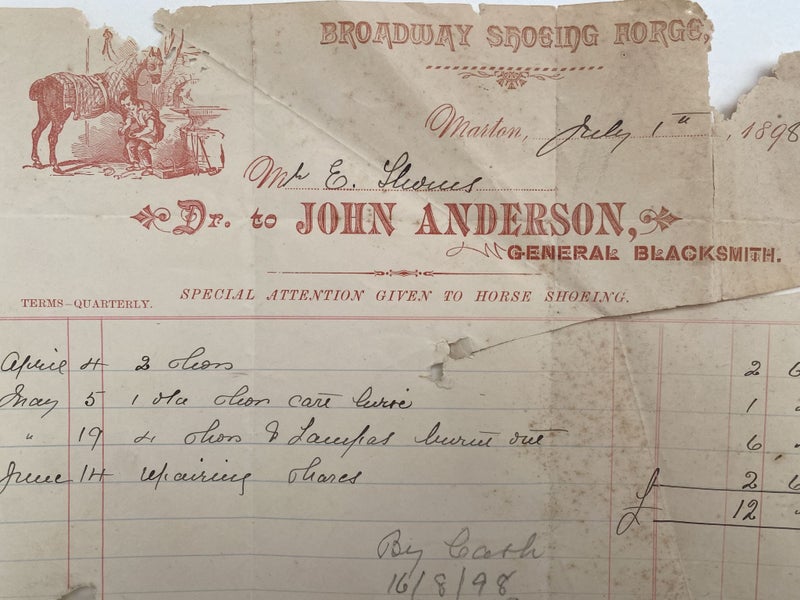 BROADWAY SHOEING FORGE,
Marton, July 1st, 1898
Mr E. Shows
Dr. to JOHN ANDERSON,
GENERAL BLACKSMITH.
TERMS—QUARTERLY. SPECIAL ATTENTION GIVEN TO HORSE SHOEING.
April 4 2 shoes 2 6
May 5 1 old shoe cart horse 1 -
" 19 4 shoes & Lampas burnt out 6 -
June 14 repairing shares 2 6
£ 12 -
By Cash
16/8/98